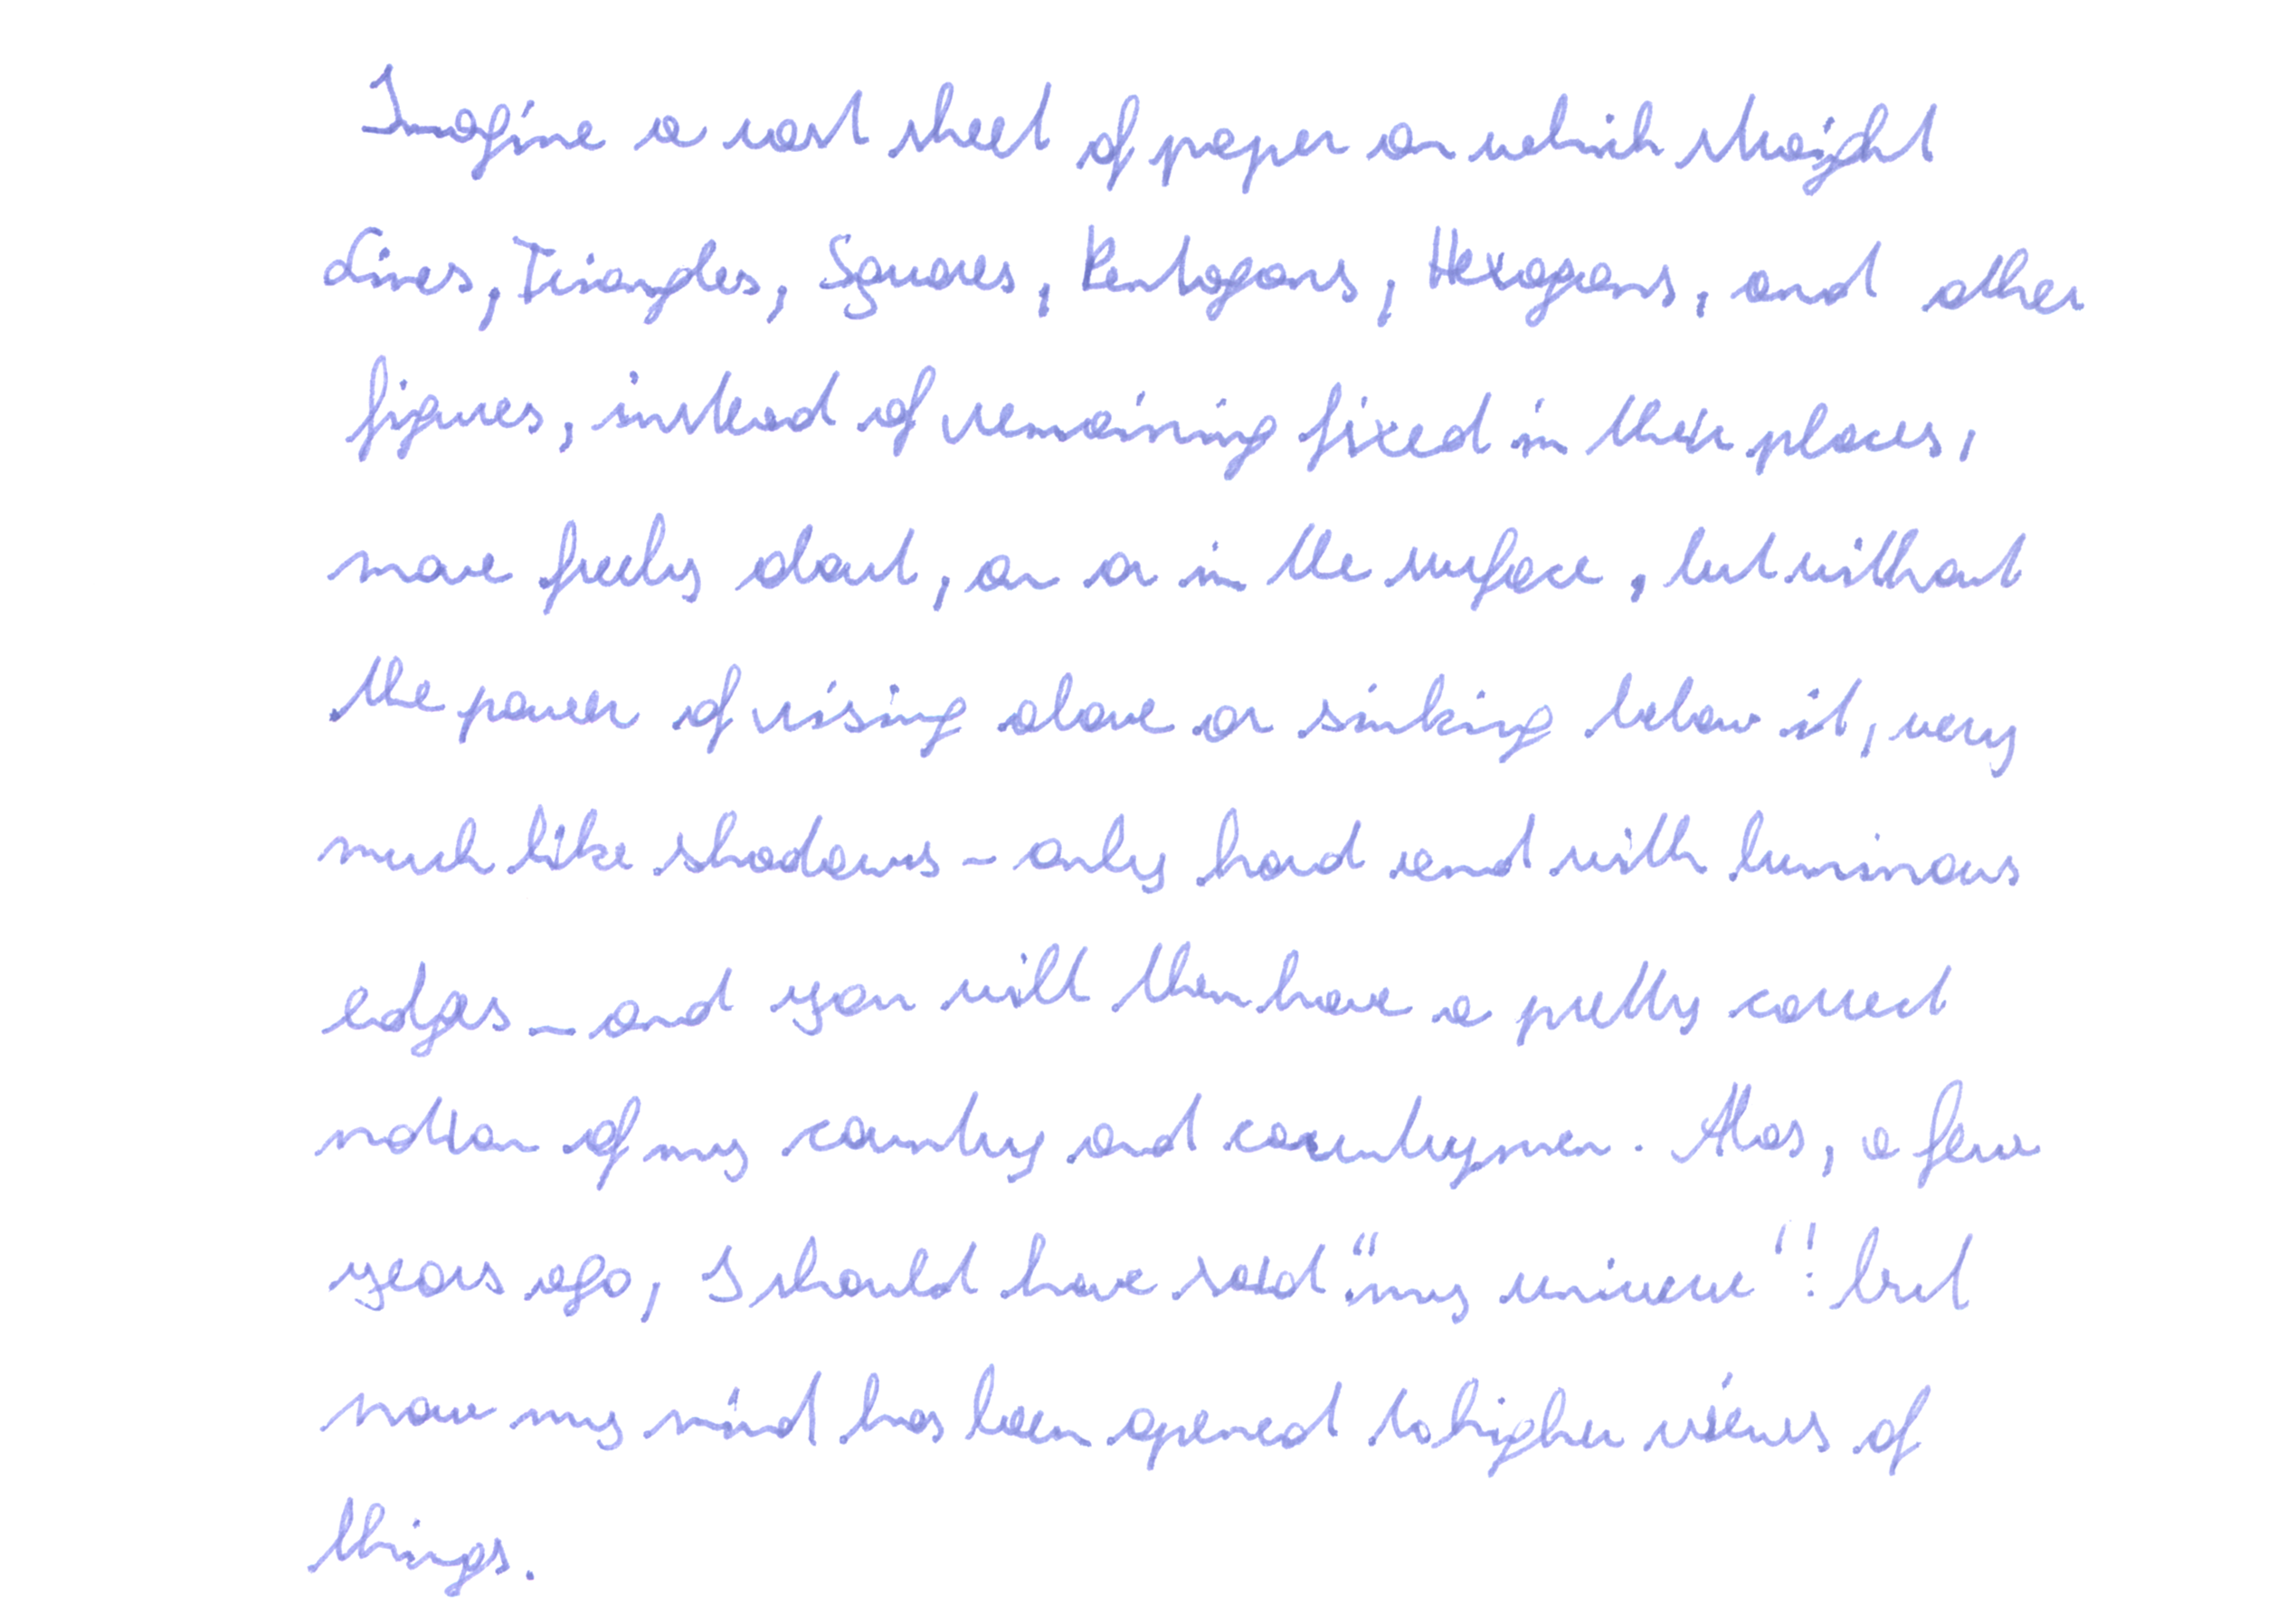 Imagine a vast sheet of paper on which straight
Lines, Triangles, Squares, Pentagons, Hexagons, and other
figures, instead of remaining fixed in their places,
move freely about, on or in the surface, but without
the power of rising above or sinking below it, very
much like shadows - only hard and with luminous
edges - and you will then have a pretty correct
notion of my country and countrymen. Alas, a few
years ago, I should have said "my universe": but
now my mind has been opened to higher views of
things.